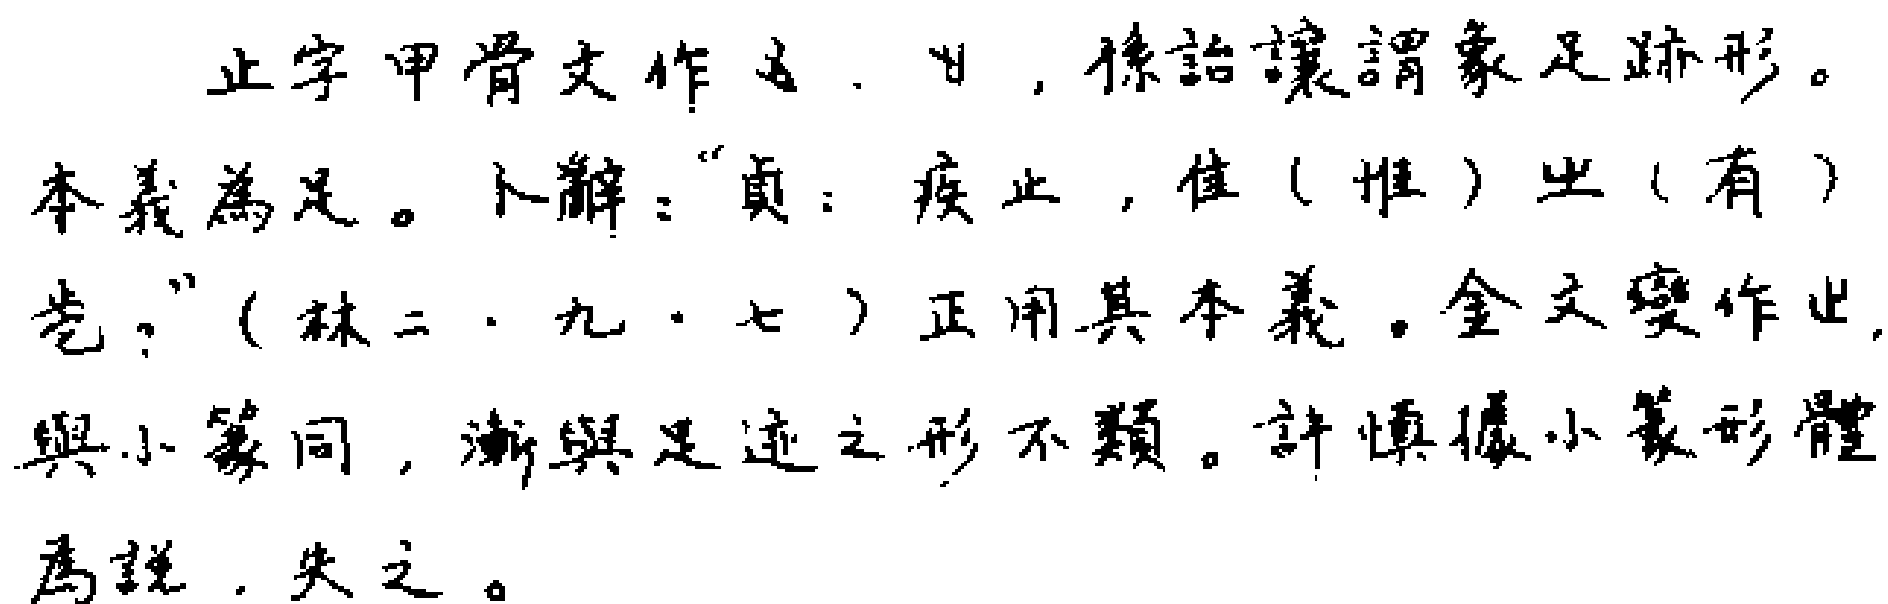 止字甲骨文作、，孫詒讓謂象足跡形。
本義為足。卜辭：“貞：疾止，隹（惟）㞢（有）
𡆥？”（林二·九·七）正用其本義。金文變作止，
與小篆同，漸與足迹之形不類。許慎據小篆形體
為說，失之。